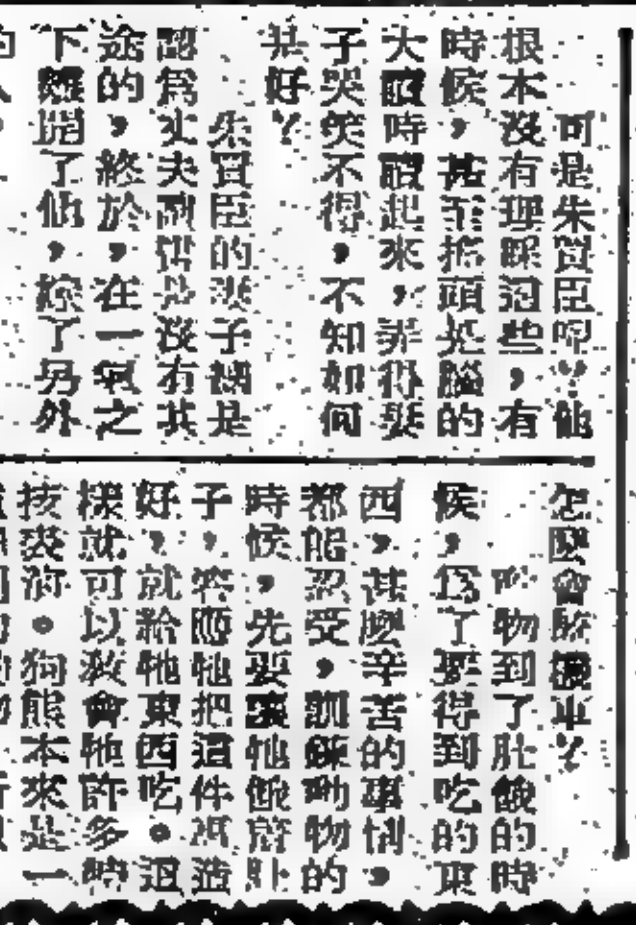 可是朱買臣呢?他
根本沒有理睬這些,有
時候,甚至搖頭晃腦的
大讀時讀起來,弄得妻
子哭笑不得,不知如何
是好?
朱買臣的妻子總是
認爲丈夫讀書是沒有其
途的,終於,在一氣之
下離開了他,嫁了另外
怎麼會騎機車?
動物到了肚餓的時
候,爲了要得到吃的東
西,甚麼辛苦的事情,
都能忍受,訓練動物的
時候,先要讓牠餓着肚
子,然而牠把這件
好,就給牠東西吃。這
樣就可以教會牠許多
技藝。狗熊本來是一